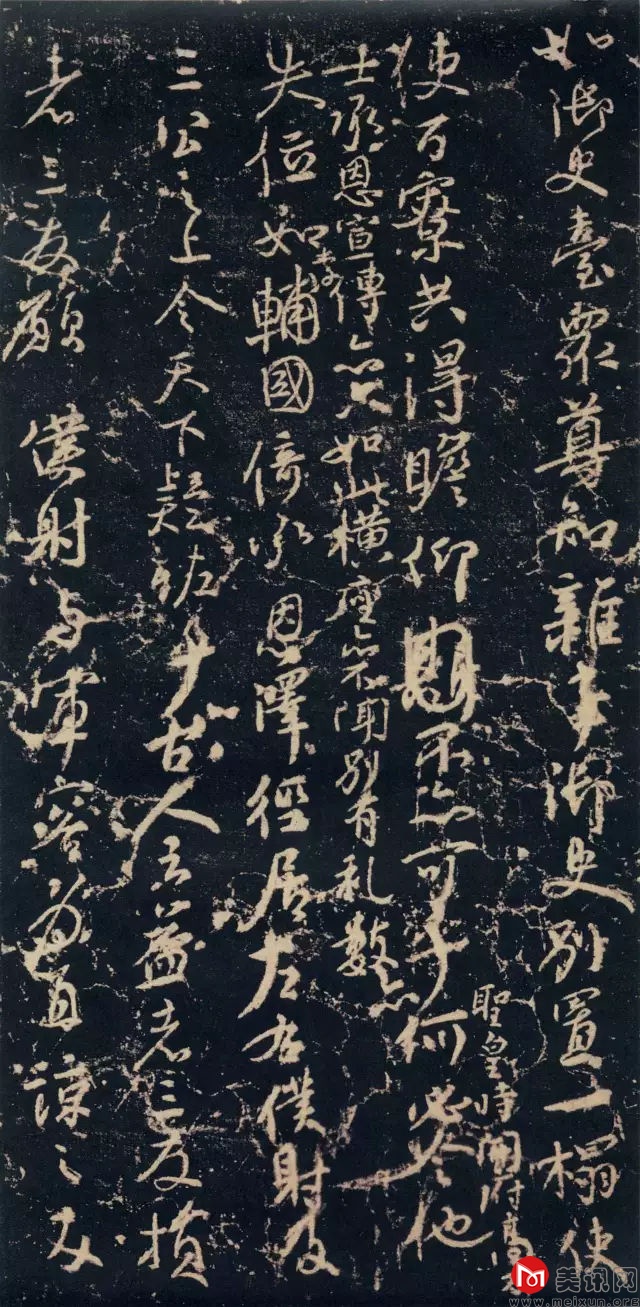 如御史臺衆尊知雜事御史別置一榻使
使百寮共得瞻仰不亦可乎
聖皇時開府高力
士承恩宣傳亦只如此橫座亦不聞別有礼數亦
何必令他
失位如李輔國倚承恩澤徑居左右僕射及
三公之上令天下疑怪乎古人云益者三友損
者三友願僕射与軍容為直諒之友
美讯网
www.meixun.org